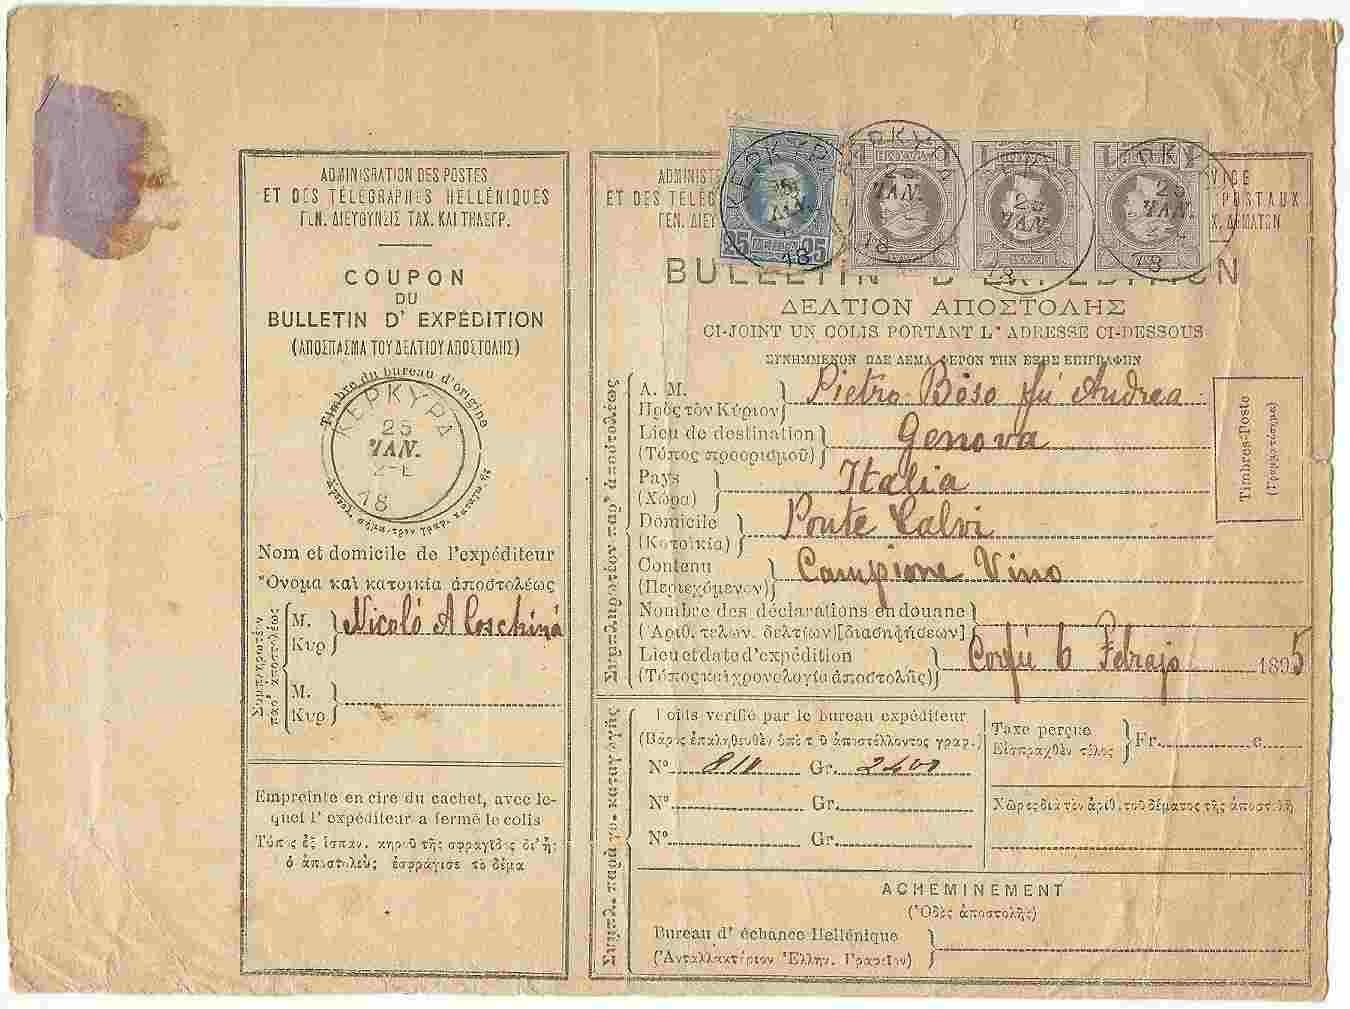 ADMINISTRATION DES POSTES
ET DES TÉLÉGRAPHES HELLÉNIQUES
ΓΕΝ. ΔΙΕΥΘΥΝΣΙΣ ΤΑΧ. ΚΑΙ ΤΗΛΕΓΡ.
COUPON
DU
BULLETIN D' EXPÉDITION
(ΑΠΟΣΠΑΣΜΑ ΤΟΥ ΔΕΛΤΙΟΥ ΑΠΟΣΤΟΛΗΣ)
Timbre du bureau d'origine
ΚΕΡΚΥΡΑ
25
ΙΑΝ.
18
Nom et domicile de l'expéditeur
Ὄνομα καὶ κατοικία ἀποστολέως
M.
Κυρ
Nicoló
M.
Κυρ
Empreinte en cire du cachet, avec le-
quel l' expéditeur a fermé le colis
Τύπος ἐξ ἱσπαν. κηροῦ τῆς σφραγῖδος δι' ἧς
ὁ ἀποστολεὺς ἐσφράγισε τὸ δέμα
ADMINIST
ET DES TÉLÉG
ΓΕΝ. ΔΙΕΥ
VICE
POSTAUX
Χ. ΔΕΜΑΤΩΝ
ΚΕΡΚΥΡ
25
ΙΑΝ.
18
25 25
ΚΕΡΚΥΡΑ
25
ΙΑΝ.
18
1 1
ΕΛΛΑΣ
25
ΙΑΝ.
18
1 1
25
ΙΑΝ.
18
1 1
BULLETIN D' EXPÉDITION
ΔΕΛΤΙΟΝ ΑΠΟΣΤΟΛΗΣ
CI-JOINT UN COLIS PORTANT L' ADRESSE CI-DESSOUS
ΣΥΝΗΜΜΕΝΟΝ ΩΔΕ ΔΕΜΑ ΦΕΡΟΝ ΤΗΝ ΕΞΗΣ ΕΠΙΓΡΑΦΗΝ
A. M.
Πρὸς τὸν Κύριον
Pietro Böso fú Andrea
Lieu de destination
(Τόπος προορισμοῦ)
Genova
Pays
(Χώρα)
Italia
Domicile
(Κατοικία)
Ponte Calvi
Contenu
(Περιεχόμενον)
Campione Vino
Nombre des déclarations en douane
(Ἀριθ. τελων. δελτίων) [διασαφήσεων]
Lieu et date d'expédition
(Τόπος καὶ χρονολογία ἀποστολῆς)
Corfú 6 Febrajo 1895
Timbres-Poste
(Γραμματόσημα)
Συμπληρωτέον παρ' ἀποστολέως
Colis vérifié par le bureau expéditeur
(Βάρος ἐπαληθευθὲν ὑπὸ τοῦ ἀποστέλλοντος γραφ.)
Nº 810 Gr. 2400
Nº Gr.
Nº Gr.
Taxe perçue
Εἰσπραχθὲν τέλος
Fr. c.
Χῶρος διὰ τὸν ἀριθ. τοῦ δέματος τῆς ἀποστολῆς
ACHEMINEMENT
(Ὁδὸς ἀποστολῆς)
Bureau d' échance Hellénique
(Ἀνταλλακτήριον Ἑλλην. Γραφεῖον)